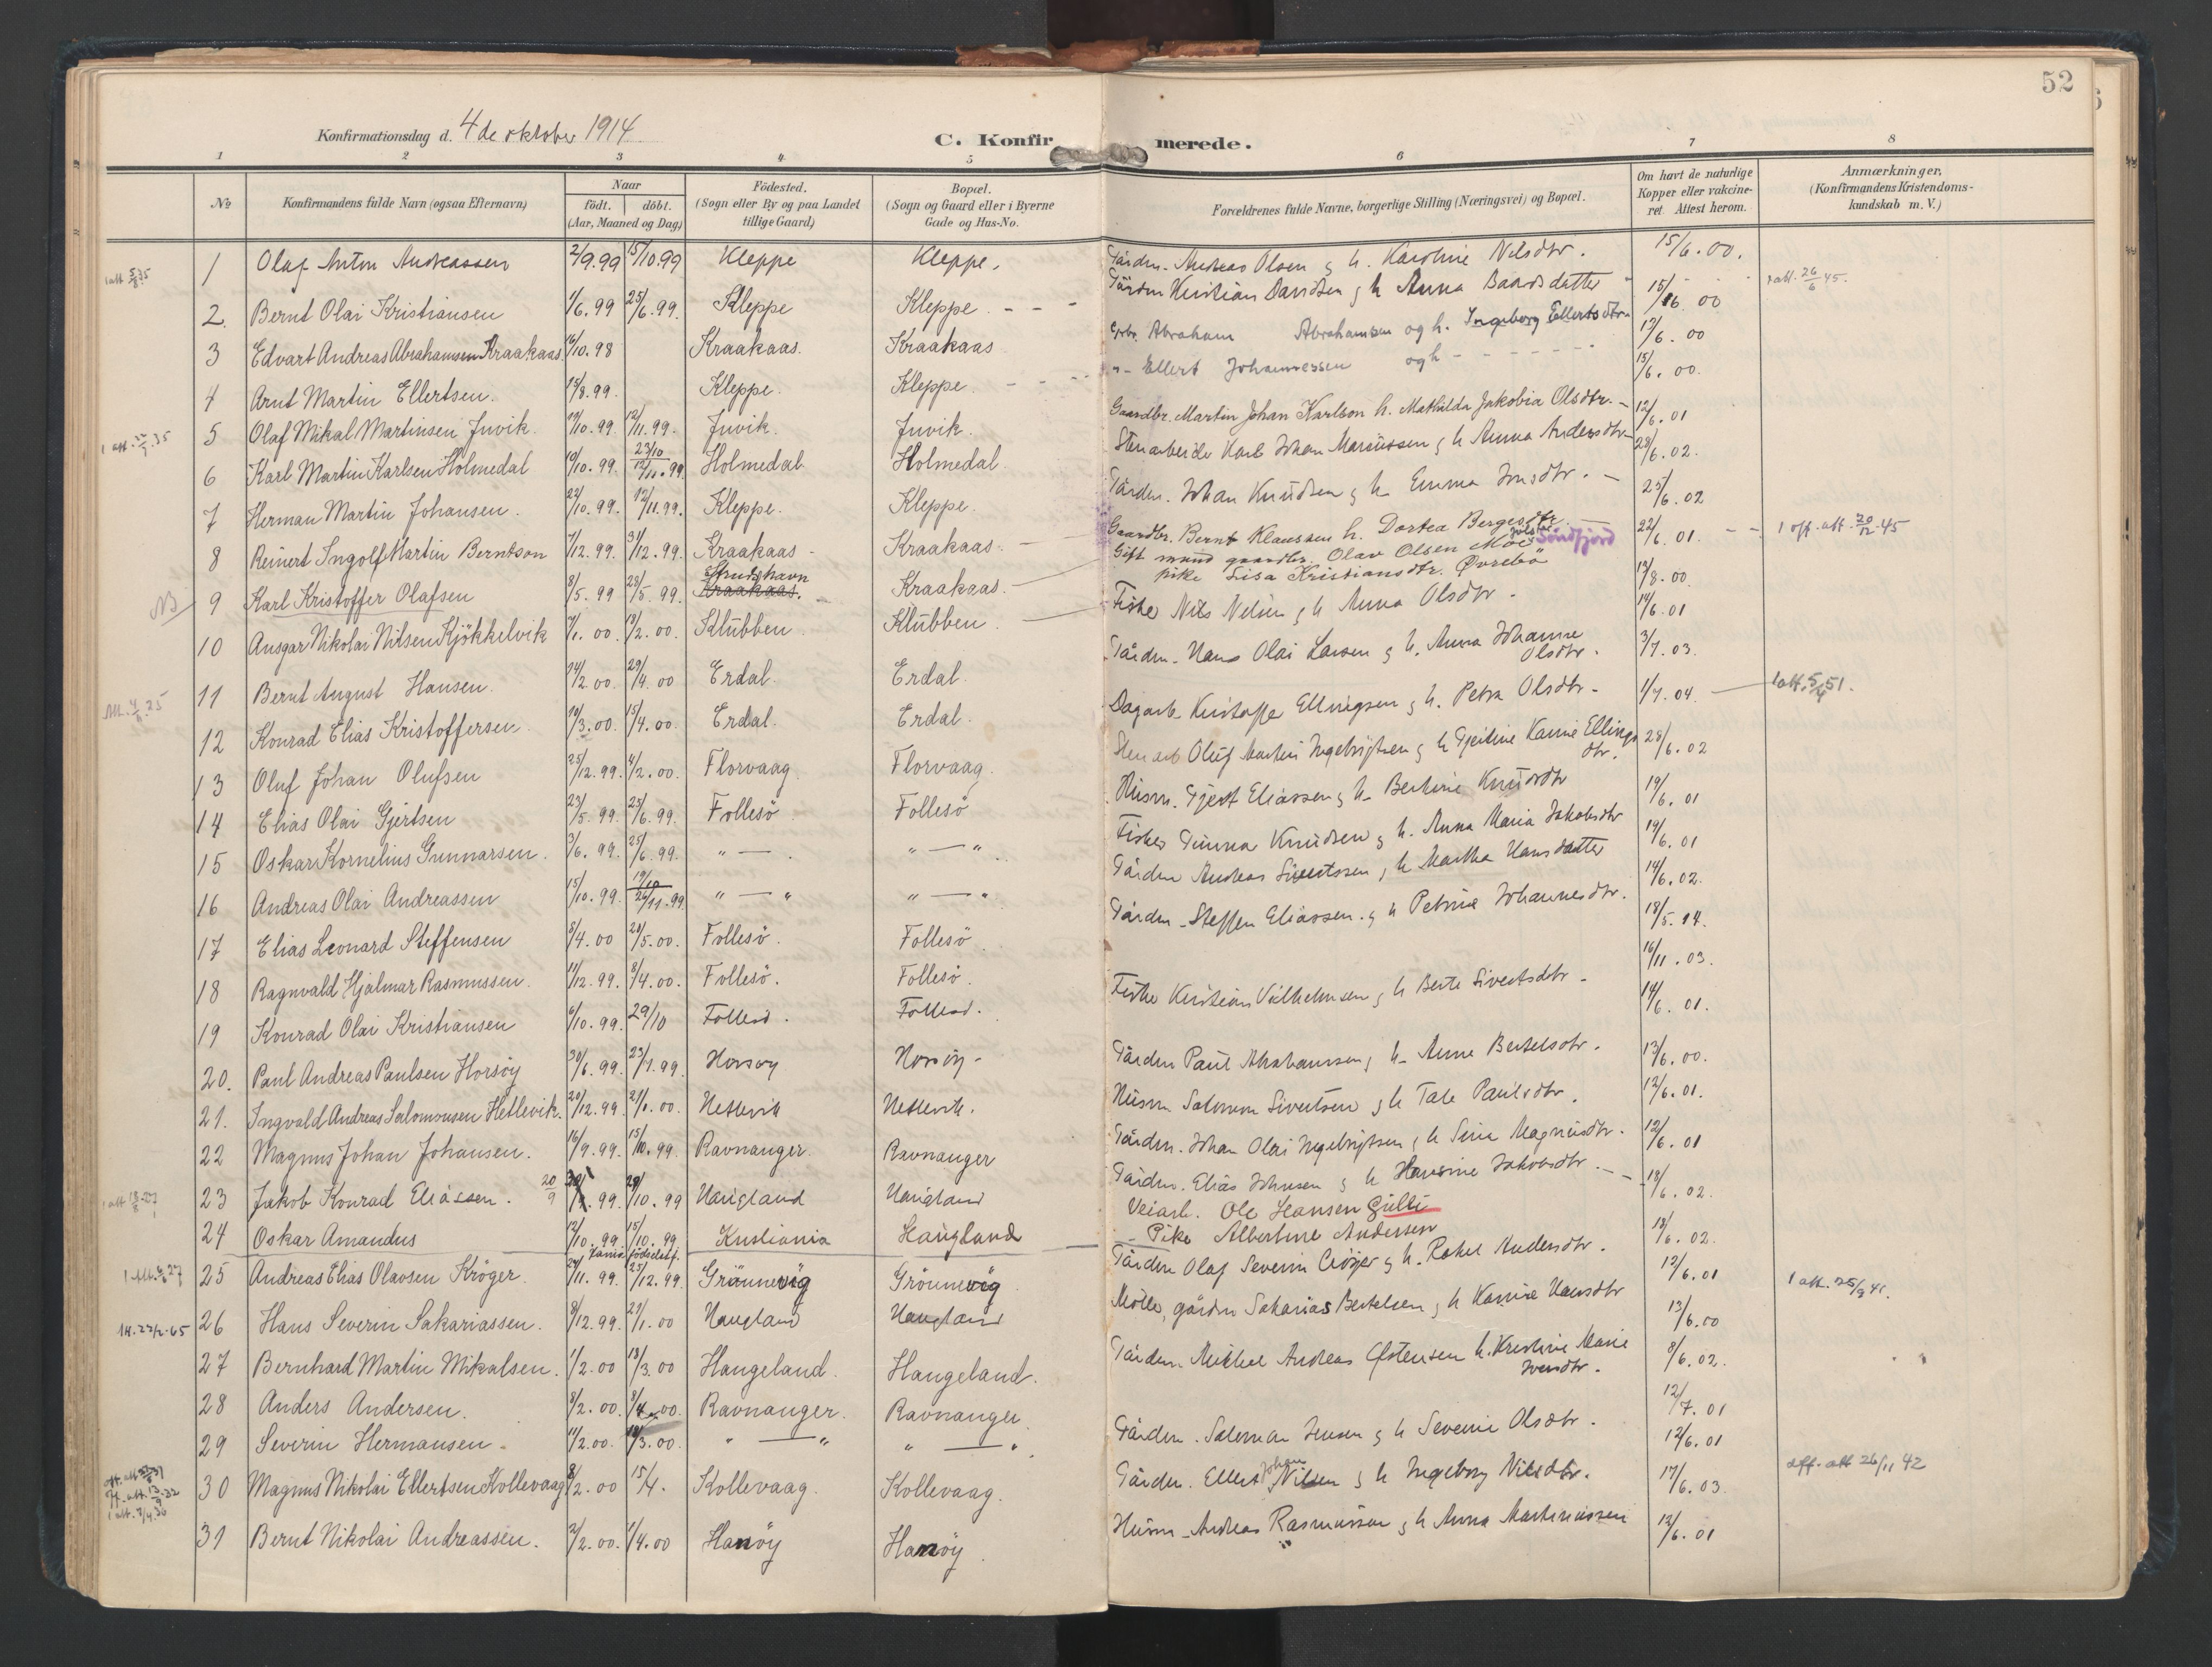 52
Konfirmationsdag d. 4 de oktober 1914
C. Konfirmerede.
1 2 3 4 5 6 7 8
No
Konfirmandens fulde Navn (ogsaa Efternavn)
Naar
födt. döbt.
(Aar, Maaned og Dag)
Födested.
(Sogn eller By og paa Landet
tillige Gaard)
Bopæl.
(Sogn og Gaard eller i Byerne
Gade og Hus-No.
Forældrenes fulde Navne, borgerlige Stilling (Næringsvei) og Bopæl.
Om havt de naturlige
Kopper eller vakcine-
ret. Attest herom.
Anmærkninger,
(Konfirmandens Kristendoms-
kundskab m. V.)
1 Olaf Anton Andreassen 2/9.99 15/10.99 Kleppe Kleppe. Gårdm. Andreas Olsen og h. Karoline Nilsdtr. 15/6.00.
2. Bernt Olai Kristiansen 1/6.99 25/6.99. Kleppe Kleppe. Gårdm Kristian Davidsen og h Anna Baardsdatter 15/6 00 26/6 45.
3 Edvart Andreas Abrahamsen Kraakaas 16/10.98 Kraakaas. Kraakaas Abraham Abrahamsen og h. Ingeborg Ellertsdtr 12/6.00
4 Arnt Martin Ellertsen. 15/8.99. Kleppe. Kleppe Ellert Johannessen og h 15/6.00.
5 Olaf Mikal Martinsen Juvik. 19/10.99. 12/11.99. Juvik. Juvik. Gaardbr. Martin Johan Karlson h. Mathilda Jakobia Olsdtr. 12/6.01
6 Karl Martin Karlsen Holmedal 10/10.99. 23/10 12/11.99. Holmedal Holmedal Stenarbeider Karl Johan Marcussen og h Anna Andersdtr 28/6.02.
7 Herman Martin Johansen. 22/10.99. 12/11.99. Kleppe. Kleppe. Gårdm. Johan Knudsen og h. Emma Jonsdtr. 25/6.02
8 Reinert Ingolf Martin Berntson 7/12.99. 31/12.99. Kraakaas Kraakaas. Gaardbr. Bernt Klaussen h. Dortea Bergesdtr 22/6.01. 1 off. att. 20/12.45
9 Karl Kristoffer Olafsen 8/5.99 28/5.99. Kraakaas. Kraakaas. Gift mand gaardbr. Olav Olsen Moe Søndfjord
pike Lisa Kristiansdtr. Øvrebö 12/8.00.
NB
10 Ansgar Nikolai Nilsen Kjökkelvik 7/1.00. 18/2.00. Klubben Klubben Fisker Nils Nelsen og h Anna Olsdtr. 14/6.01
11 Bernt August Hansen. 14/2 00. 29/4.00 Erdal. Erdal. Gårdm. Hans Olai Larsen og h. Anna Johanne
Olsdtr. 3/7.03.
12 Konrad Elias Kristoffersen. 10/3.00. 15/4.00. Erdal. Erdal. Dagarb. Kristoffer Ellingsen og h. Petra Olsdtr. 1/7.04. 1 att. 5/4 51.
13 Oluf Johan Olufsen 25/12.99. 4/2.00. Florvaag. Florvaag. Stenarb Oluf Martin Ingebrigtsen og h Karine Ellings
dtr. 28/6.02
14 Elias Olai Gjertsen 23/5.99. 25/6.99. Follesö. Follesö Husm. Gjert Eliassen og h. Bertine Knudsdtr 19/6.01
15 Oskar Kornelius Gunnarsen. 3/6.99. 25/6.99. " — . " — " Fisker Gunnar Knudsen og h. Anna Maria Jakobsdtr 19/6.01
16 Andreas Olai Andreassen 15/10.99. 19/10 26/11.99. " — " " — " Gårdm Andreas Sivertssen og h Martha Hansdatter 14/6.02.
17 Elias Leonard Steffensen 8/4.00 20/5.00. Follesö. Follesö. Gårdm. Steffen Eliassen og h Petrine Johannesdtr. 18/5.14.
18 Ragnvald Hjalmar Rasmussen. 11/12.99. 8/4.00. Follesö. Follesö. 16/11.03.
19 Konrad Olai Kristiansen 6/10.99. 29/10 Follesö. Follesö. Fisker Kristian Vilhelmsen og h Berte Sivertsdtr. 14/6.01.
20. Paul Andreas Paulsen Horsöy 30/6.99. 23/7.99. Horsöy Horsöy. Gårdm Paul Abrahamsen og h. Anne Bertelsdtr. 13/6.00.
21. Ingvald Andreas Salomonsen Hetlevik. 20/12.99. 21/1.00. Hetlevik Hetlevik. Husm. Salomon Sivertsen og h Tale Paulsdtr. 12/6.01.
22 Magnus Johan Johansen. 16/9.99. 15/10.99. Ravnanger. Ravnanger Gårdm. Johan Olai Ingebrigtsen og h Sina Magnusdtr. 12/6.01
23 Jakob Konrad Eliassen. 20/9 99. 29/10.99 Haugland Haugland Gårdm. Elias Johnsen og h Hansine Jakobsdtr. 18/6.02.
24 Oskar Amandus 12/10.99. 15/10.99 Kristiania Haugland Veiarb. Ole Hansen Gulli
Pike Albertine Andersen 18/6.02.
25 Andreas Elias Olavsen Kröger. 24/11.99. 25/12.99. Grönnevig Grönnevig Gårdm Olaf Severin Cröger og h. Rakel Andersdtr. 12/6.01
26 Hans Severin Sakariassen. 8/12.99. 21/1.00 Haugland Haugland Möller, gårdm Sakarias Bertelsen og h Karine Hansdtr 13/6.00 1 att. 25/9 41.
27 Bernhard Martin Mikalsen. 1/2.00 18/3.00 Haugeland. Haugeland. Gårdm. Mikkel Andreas Östensen h. Kristine Marie
Iversdtr. 8/6.02.
28 Anders Andersen. 8/2.00. 8/4.00. Ravnanger. Ravnanger. 12/7.01
29 Severin Hermansen. 11/2.00. 18/3.00. " — " " — " Gårdm. Salomon Jensen og h Severine Olsdtr. 12/6.01
30 Magnus Nikolai Ellertsen Kollevaag 8/2.00 15/4. Kollevaag. Kollevaag. Gårdm. Ellert Johan Nilsen og h Ingeborg Nilsdtr. 17/6.03. off. att 26/11 42
31 Bernt Nikolai Andreassen. 2/2.00. 1/4.00 Hanöy Hanöy. Husm. Andreas Rasmussen og h Anna Martinussen 12/6.01